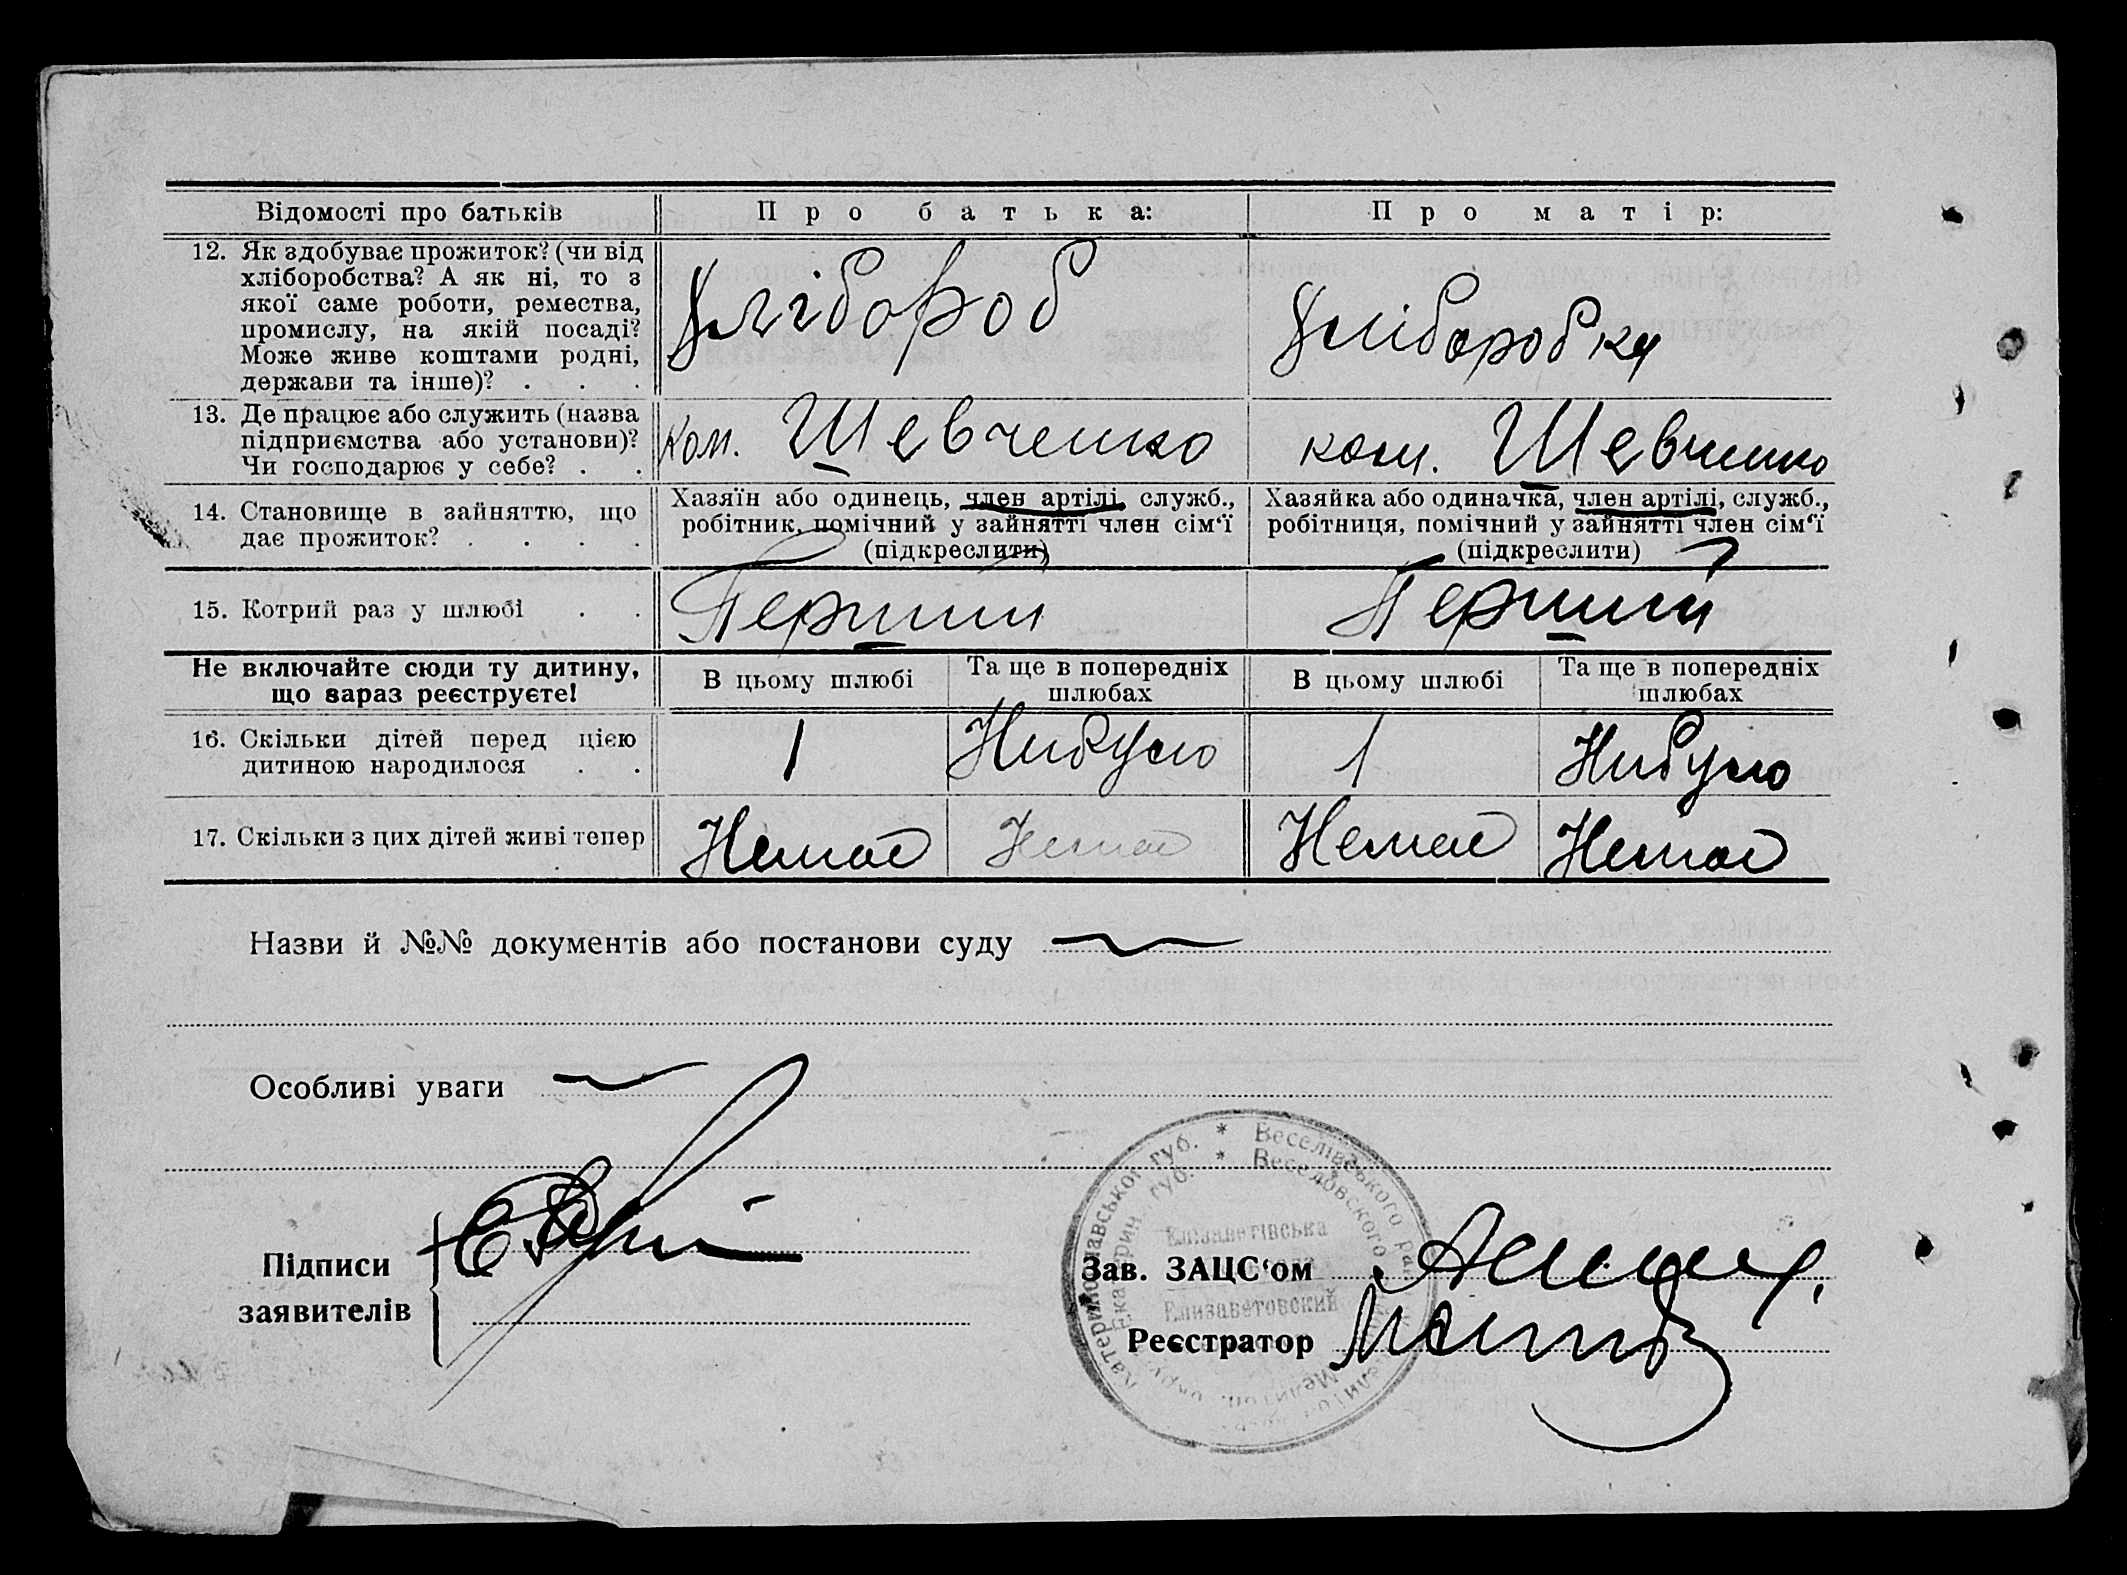 Відомості про батьків Про батька: Про матір:
12. Як здобуває прожиток? (чи від
хліборобства? А як ні, то з
якої саме роботи, ремества,
промислу, на якій посаді?
Може живе коштами родні,
держави та інше)? . . .
Хлібороб Хліборобка
13. Де працює або служить (назва
підприємства або установи)?
Чи господарює у себе? . .
Ком. Шевченко ком. Шевченко
14. Становище в зайняттю, що
дає прожиток? . . . .
Хазяїн або одинець, член артілі, служб.,
робітник, помічний у зайнятті член сім'ї
(підкреслити)
Хазяйка або одиначка, член артілі, служб.,
робітниця, помічний у зайнятті член сім'ї
(підкреслити)
15. Котрий раз у шлюбі . . Перший Перший
Не включайте сюди ту дитину,
що зараз реєструєте!
В цьому шлюбі Та ще в попередніх
шлюбах
В цьому шлюбі Та ще в попередніх
шлюбах
16. Скільки дітей перед цією
дитиною народилося . .
1 Нибуло 1 Нибуло
17. Скільки з цих дітей живі тепер Немає Немає Немає Немає
Назви й №№ документів або постанови суду
Особливі уваги
Підписи
заявителів
Катеринославської губ. * Веселівського
Екатерин. губ. * Веселовского
Елизаветівська
Елизаветовский
Мелитоп. окру
Зав. ЗАЦС'ом
Реєстратор